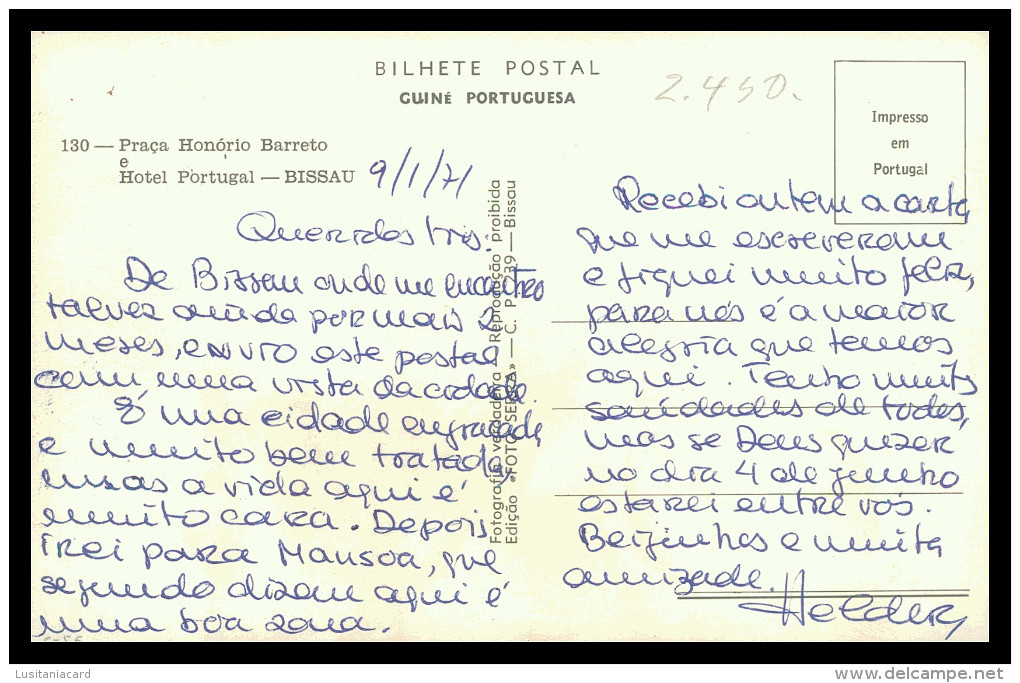 BILHETE POSTAL
GUINÉ PORTUGUESA
2.450.
Impresso
em
Portugal
130 — Praça Honório Barreto
e
Hotel Portugal — BISSAU
9/1/71
Queridos três:
De Bissau onde me encontro
talvez ainda por mais 2
meses, envio este postal
com uma vista da cidade.
É uma cidade engraçada,
e muito bem tratada,
mas a vida aqui é
muito cara. Depois
irei para Mansoa, que
segundo dizem aqui é
uma boa zona.
Fotografia verdadeira — Reprodução proibida
Edição «FOTO SERRA» — C. P. 239 — Bissau
Recebi ontem a carta,
que me escreveram
e fiquei muito feliz,
para nós é a maior
alegria que temos
aqui. Tenho muitas
saudades de todos,
mas se Deus quizer
no dia 4 de junho
estarei entre vós.
Beijinhos e muita
amizade.
Helder
Lusitaniacard
www.delcampe.net